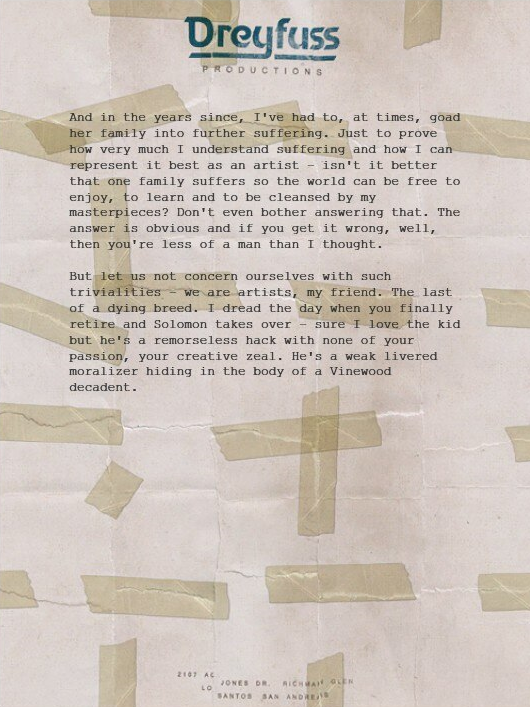 Dreyfuss
PRODUCTIONS
And in the years since, I've had to, at times, goad
her family into further suffering. Just to prove
how very much I understand suffering and how I can
represent it best as an artist – isn't it better
that one family suffers so the world can be free to
enjoy, to learn and to be cleansed by my
masterpieces? Don't even bother answering that. The
answer is obvious and if you get it wrong, well,
then you're less of a man than I thought.
But let us not concern ourselves with such
trivialities – we are artists, my friend. The last
of a dying breed. I dread the day when you finally
retire and Solomon takes over – sure I love the kid
but he's a remorseless hack with none of your
passion, your creative zeal. He's a weak livered
moralizer hiding in the body of a Vinewood
decadent.
2107 AC JONES DR. RICHMAN GLEN
LO SANTOS SAN ANDREAS